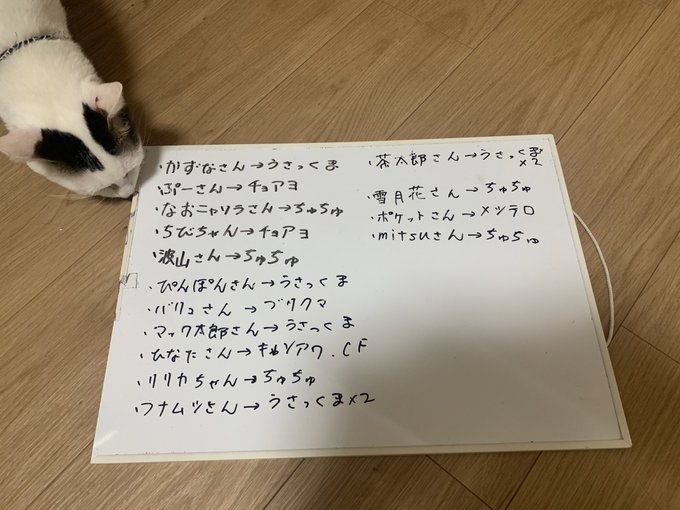 ・かずなさん→うさっくま
・ぷーさん→チョアヨ
・なおニャリラさん→ちゅちゅ
・ちびちゃん→チョアヨ
・波山さん→ちゅちゅ
・ぴんぽんさん→うさっくま
・バリュさん→ブリクマ
・マック太郎さん→うさっくま
・ひなたさん→キャンアワ.CF
・リリカちゃん→ちゅちゅ
・フナムシさん→うさっくま×2
・茶太郎さん→うさっくま×2
・雪月花さん→ちゅちゅ
・ポケットさん→メシテロ
・mitsuさん→ちゅちゅ